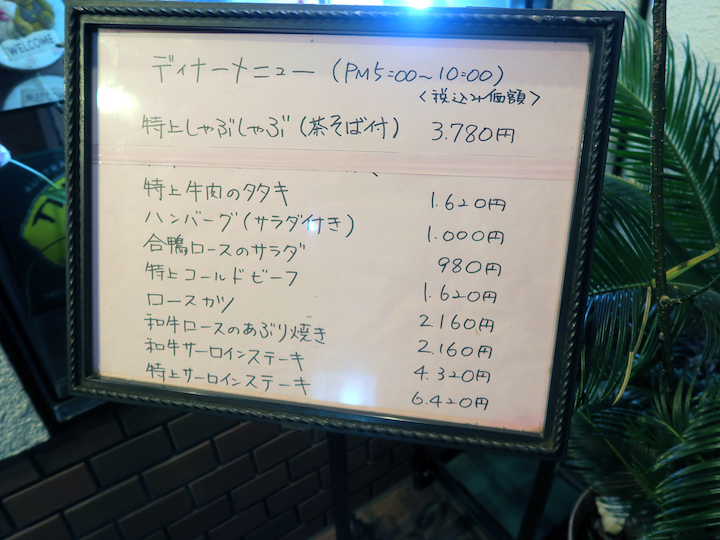 WELCOME
ディナーメニュー (PM5:00~10:00)
<税込み価額>
特上しゃぶしゃぶ (茶そば付) 3.780円
特上牛肉のタタキ 1.620円
ハンバーグ (サラダ付き) 1.000円
合鴨ロースのサラダ 980円
特上コールドビーフ 1.620円
ロースカツ 2.160円
和牛ロースのあぶり焼き 2.160円
和牛サーロインステーキ 4.320円
特上サーロインステーキ 6.420円